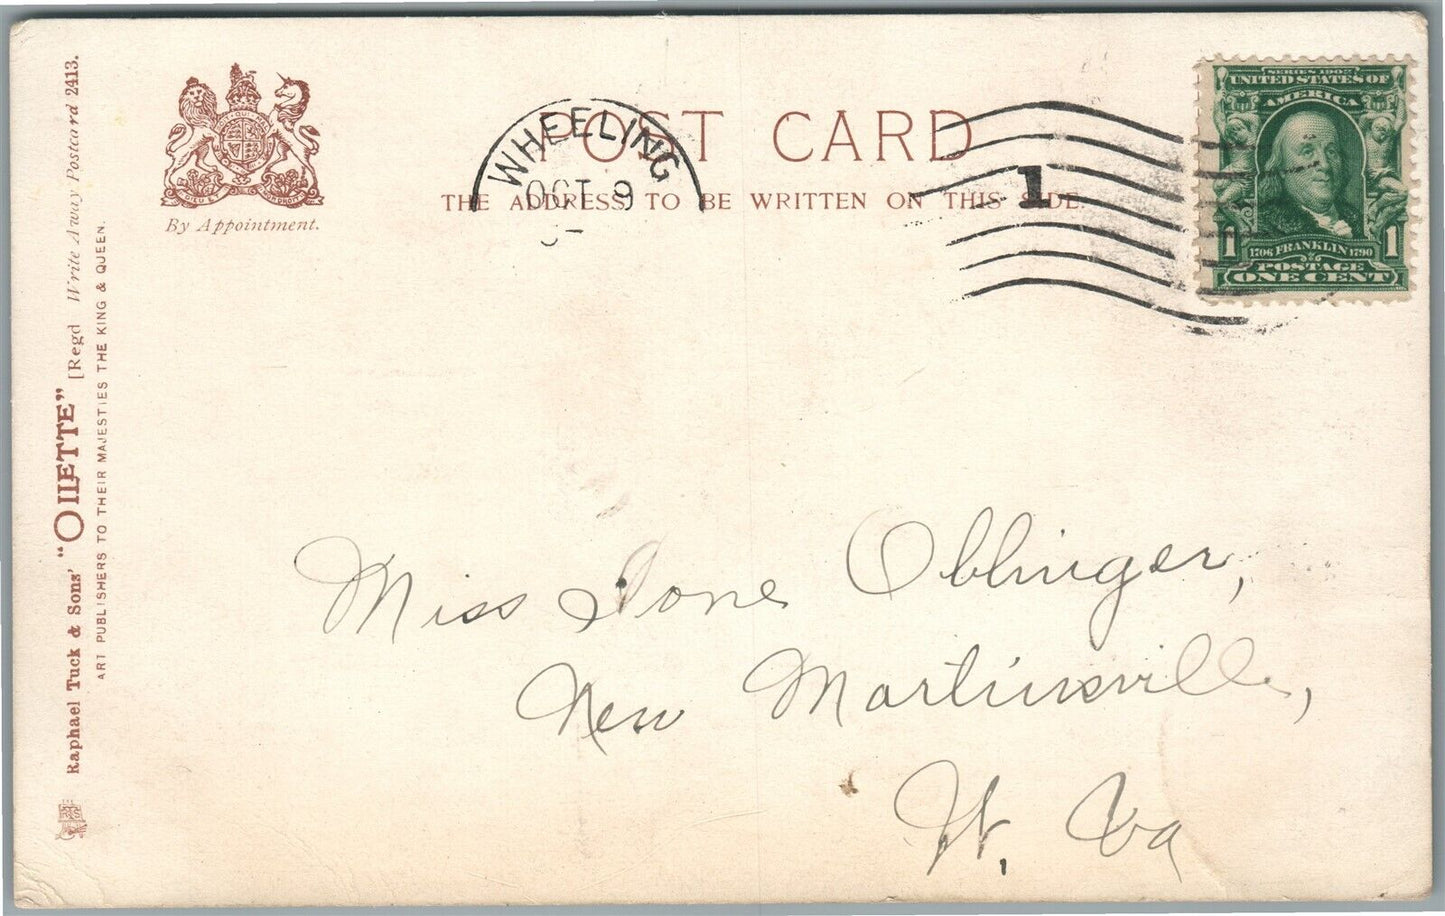 POST CARD
THE ADDRESS TO BE WRITTEN ON THIS SIDE.
By Appointment.
WHEELING
OCT 9
1
SERIES 1902
UNITED STATES OF
AMERICA
1706 FRANKLIN 1790
1 1
POSTAGE
ONE CENT
Raphael Tuck & Sons' "OILETTE" [Regd Write Away Postcard 2413.
ART PUBLISHERS TO THEIR MAJESTIES THE KING & QUEEN.
Miss Ione Oblinger,
New Martinsville,
W. Va